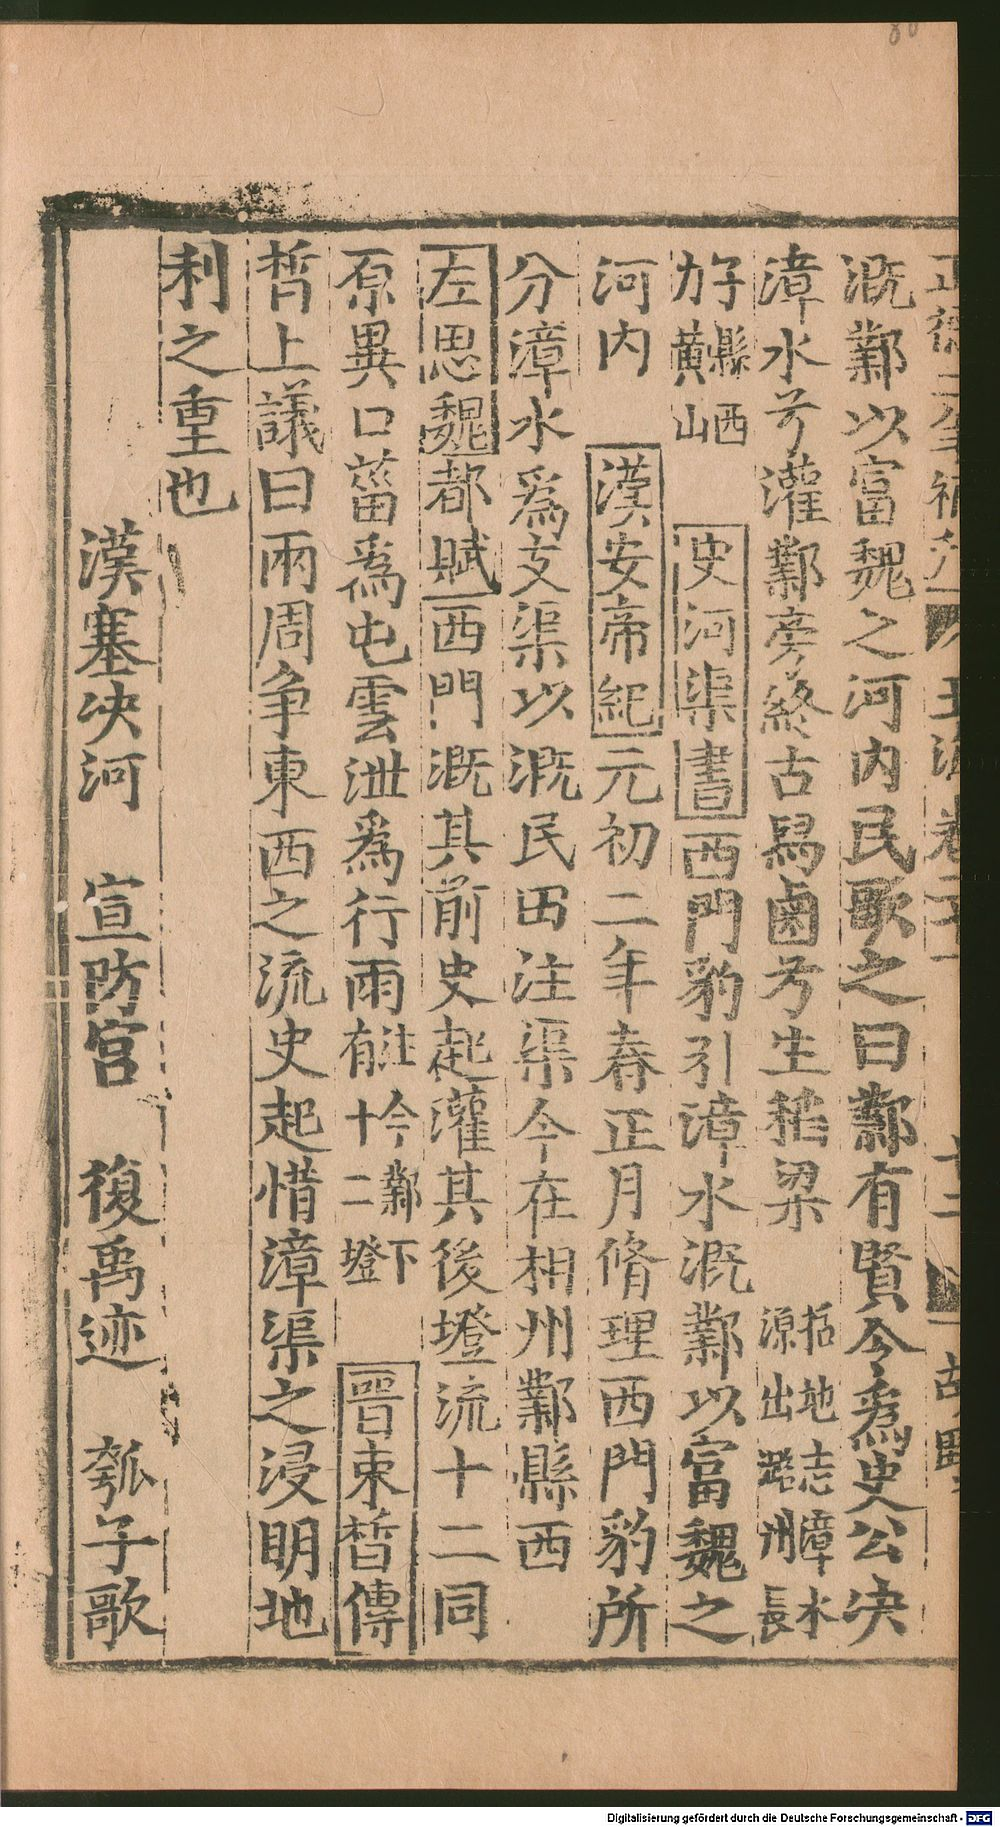 溉鄴以富魏之河内民歌之曰鄴有賢令爲史公决
漳水兮灌鄴旁終古舄鹵兮生稻梁 括地志漳水
源出潞州長
子縣西
力黃山 史河渠書西門豹引漳水溉鄴以富魏之
河内 漢安帝紀元初二年春正月脩理西門豹所
分漳水爲支渠以溉民田注渠今在相州鄴縣西
左思魏都賦西門溉其前史起灌其後墱流十二同
原異口畱爲屯雲泄爲行雨注今鄴下
有十二墱 晉束晳傳
晳上議曰兩周争東西之流史起惜漳渠之浸明地
利之重也
漢塞决河 宣防宫 復禹迹 瓠子歌
80
Digitalisierung gefördert durch die Deutsche Forschungsgemeinschaft - DFG